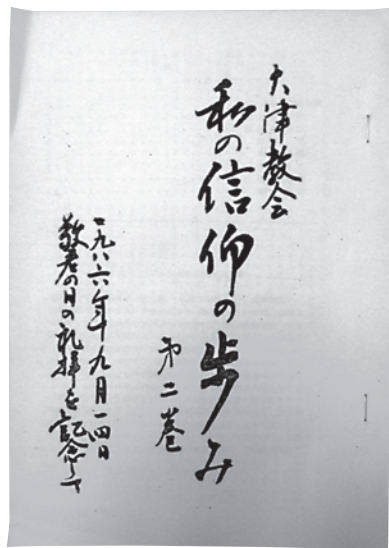 大津教会
私の信仰の歩み
第二巻
一九八六年九月一四日
敬老の日の礼拝を記念して